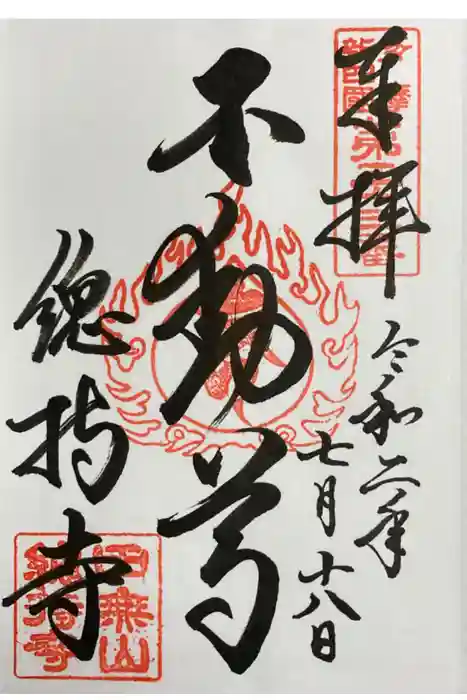 奉拝
令和二年
七月十八日
不動尊
總持寺
山
總持寺